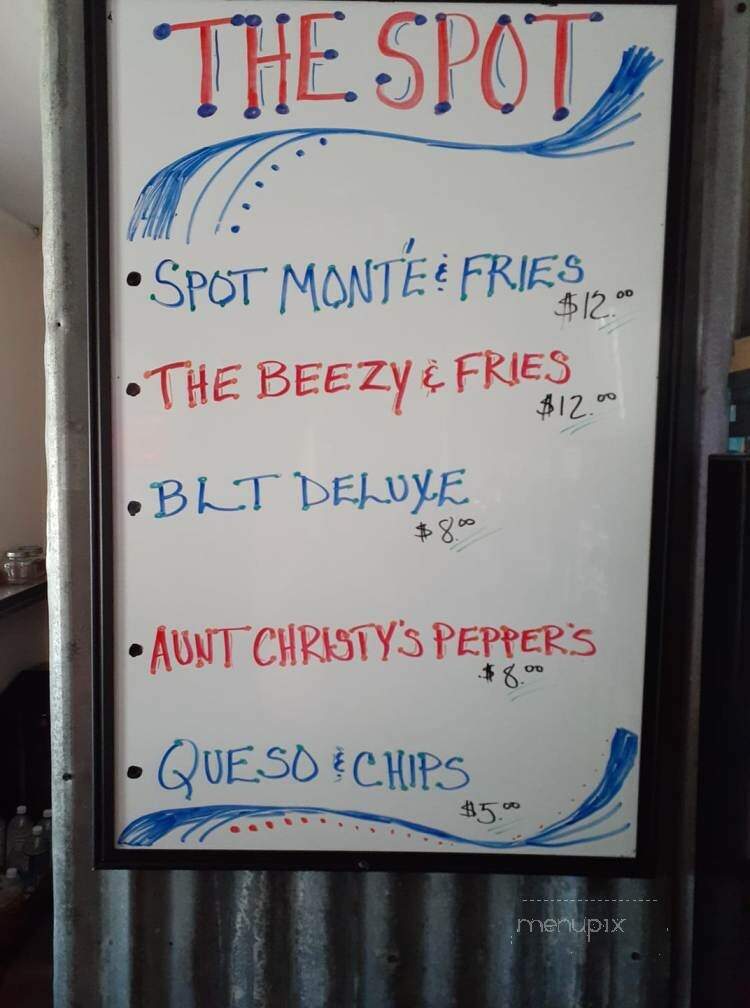 THE SPOT
• SPOT MONTÉ & FRIES
$12.00
• THE BEEZY & FRIES
$12.00
• BLT DELUXE
$8.00
• AUNT CHRISTY'S PEPPER'S
$8.00
• QUESO & CHIPS
$5.00
menupix